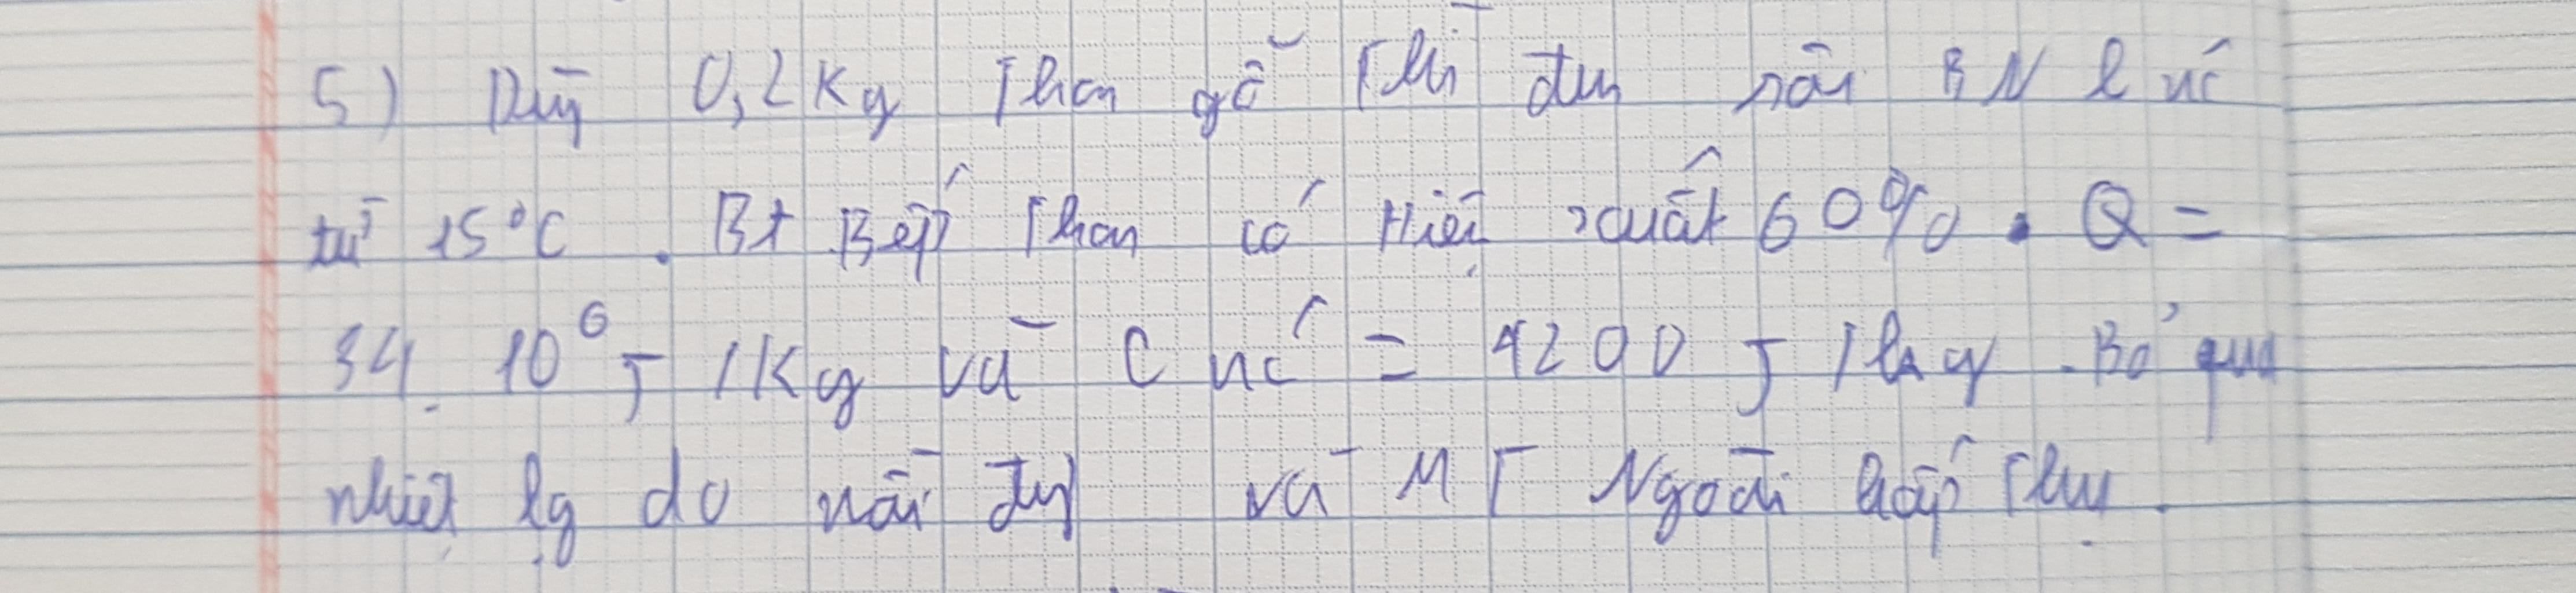 5) Dùng 0,2Kg Than gỗ Thì đun sôi BN l nc
từ 15°C . Bt Bếp Than có Hiệu xuất 60% . Q =
34. 10⁶ J /Kg và C nc = 4200 J /kg . Bỏ qua
nhiệt lg do nồi đựng và MT Ngoài hấp Thụ .